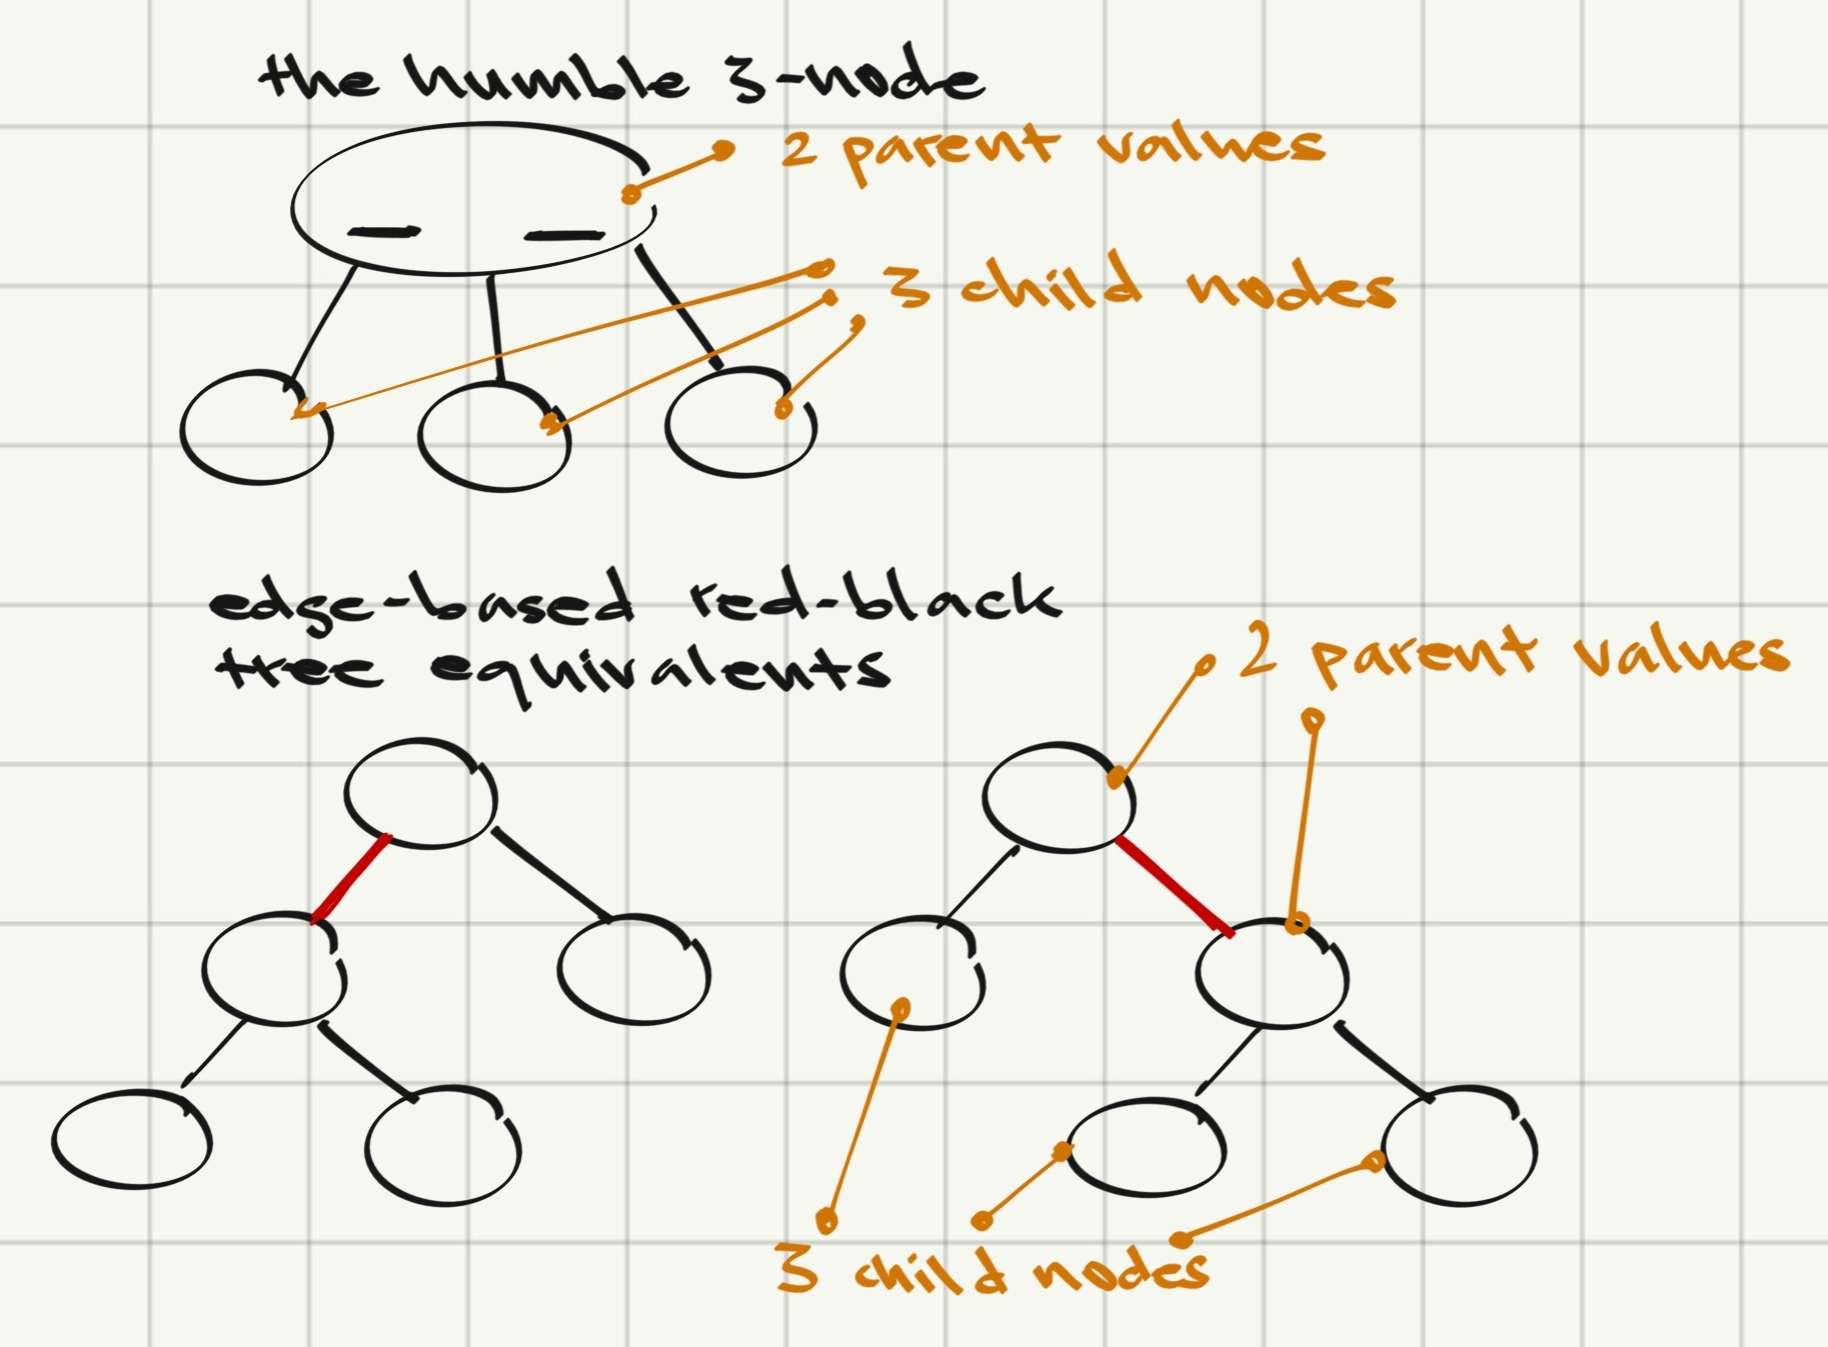 the humble 3-node
2 parent values
3 child nodes
edge-based red-black
tree equivalents
2 parent values
3 child nodes